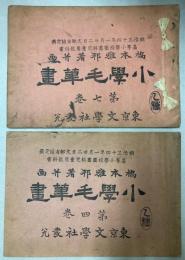 明治三十四年一月廿二日文部省檢定濟
高等小學校圖畫科兒童用教科書
橋本雅邦著并画
小學毛筆畫
第七卷
東京文學社發兌
乙種
明治三十四年一月廿二日文部省檢定濟
高等小學校圖畫科兒童用教科書
橋本雅邦著并画
小學毛筆畫
第四卷
東京文學社發兌
乙種